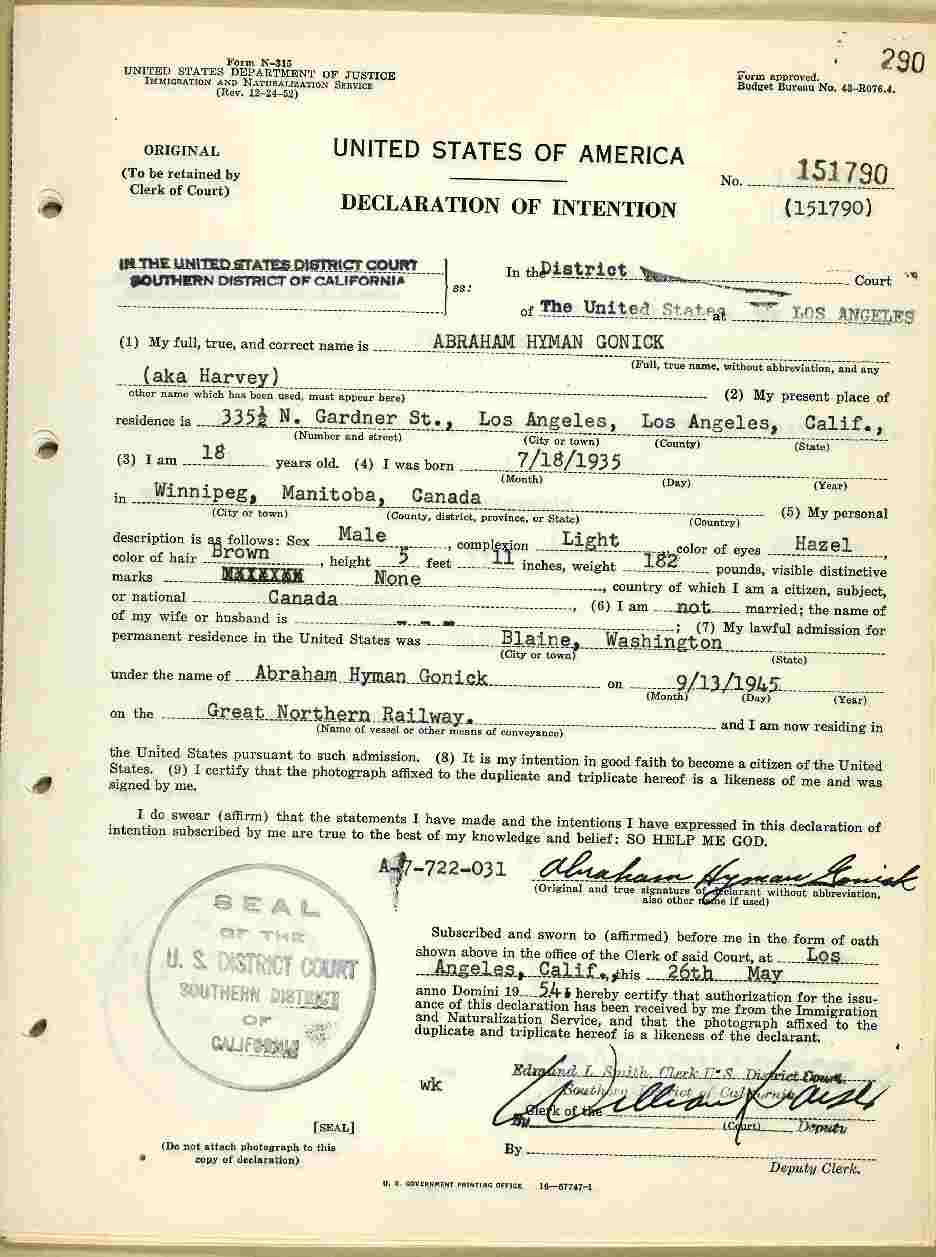 290
Form N-315
UNITED STATES DEPARTMENT OF JUSTICE
IMMIGRATION AND NATURALIZATION SERVICE
(Rev. 12-24-52)
Form approved.
Budget Bureau No. 43-R076.4.
ORIGINAL
(To be retained by
Clerk of Court)
UNITED STATES OF AMERICA
DECLARATION OF INTENTION
No. 151790
(151790)
IN THE UNITED STATES DISTRICT COURT
SOUTHERN DISTRICT OF CALIFORNIA
ss:
In the District Court
of The United States at LOS ANGELES
(1) My full, true, and correct name is ABRAHAM HYMAN GONICK
(Full, true name, without abbreviation, and any
(aka Harvey)
other name which has been used, must appear here) (2) My present place of
residence is 335½ N. Gardner St., Los Angeles, Los Angeles, Calif.,
(Number and street) (City or town) (County) (State)
(3) I am 18 years old. (4) I was born 7/18/1935
(Month) (Day) (Year)
in Winnipeg, Manitoba, Canada
(City or town) (County, district, province, or State) (Country) (5) My personal
description is as follows: Sex Male, complexion Light, color of eyes Hazel,
color of hair Brown, height 5 feet 11 inches, weight 182 pounds, visible distinctive
marks None, country of which I am a citizen, subject,
or national Canada, (6) I am not married; the name of
of my wife or husband is - - -; (7) My lawful admission for
permanent residence in the United States was Blaine, Washington
(City or town) (State)
under the name of Abraham Hyman Gonick on 9/13/1945
(Month) (Day) (Year)
on the Great Northern Railway. and I am now residing in
(Name of vessel or other means of conveyance)
the United States pursuant to such admission. (8) It is my intention in good faith to become a citizen of the United
States. (9) I certify that the photograph affixed to the duplicate and triplicate hereof is a likeness of me and was
signed by me.
I do swear (affirm) that the statements I have made and the intentions I have expressed in this declaration of
intention subscribed by me are true to the best of my knowledge and belief: SO HELP ME GOD.
A-7-722-031 Abraham Hyman Gonick
(Original and true signature of declarant without abbreviation,
also other name if used)
SEAL
OF THE
U. S. DISTRICT COURT
SOUTHERN DISTRICT
OF
CALIFORNIA
Subscribed and sworn to (affirmed) before me in the form of oath
shown above in the office of the Clerk of said Court, at Los
Angeles, Calif., this 26th May
anno Domini 19 54 I hereby certify that authorization for the issu-
ance of this declaration has been received by me from the Immigration
and Naturalization Service, and that the photograph affixed to the
duplicate and triplicate hereof is a likeness of the declarant.
Edmund L Smith, Clerk U.S. District Court
Southern District of California
wk
Clerk of the (Court) Deputy
[SEAL]
By
Deputy Clerk.
(Do not attach photograph to this
copy of declaration)
U. S. GOVERNMENT PRINTING OFFICE 16—57747-1